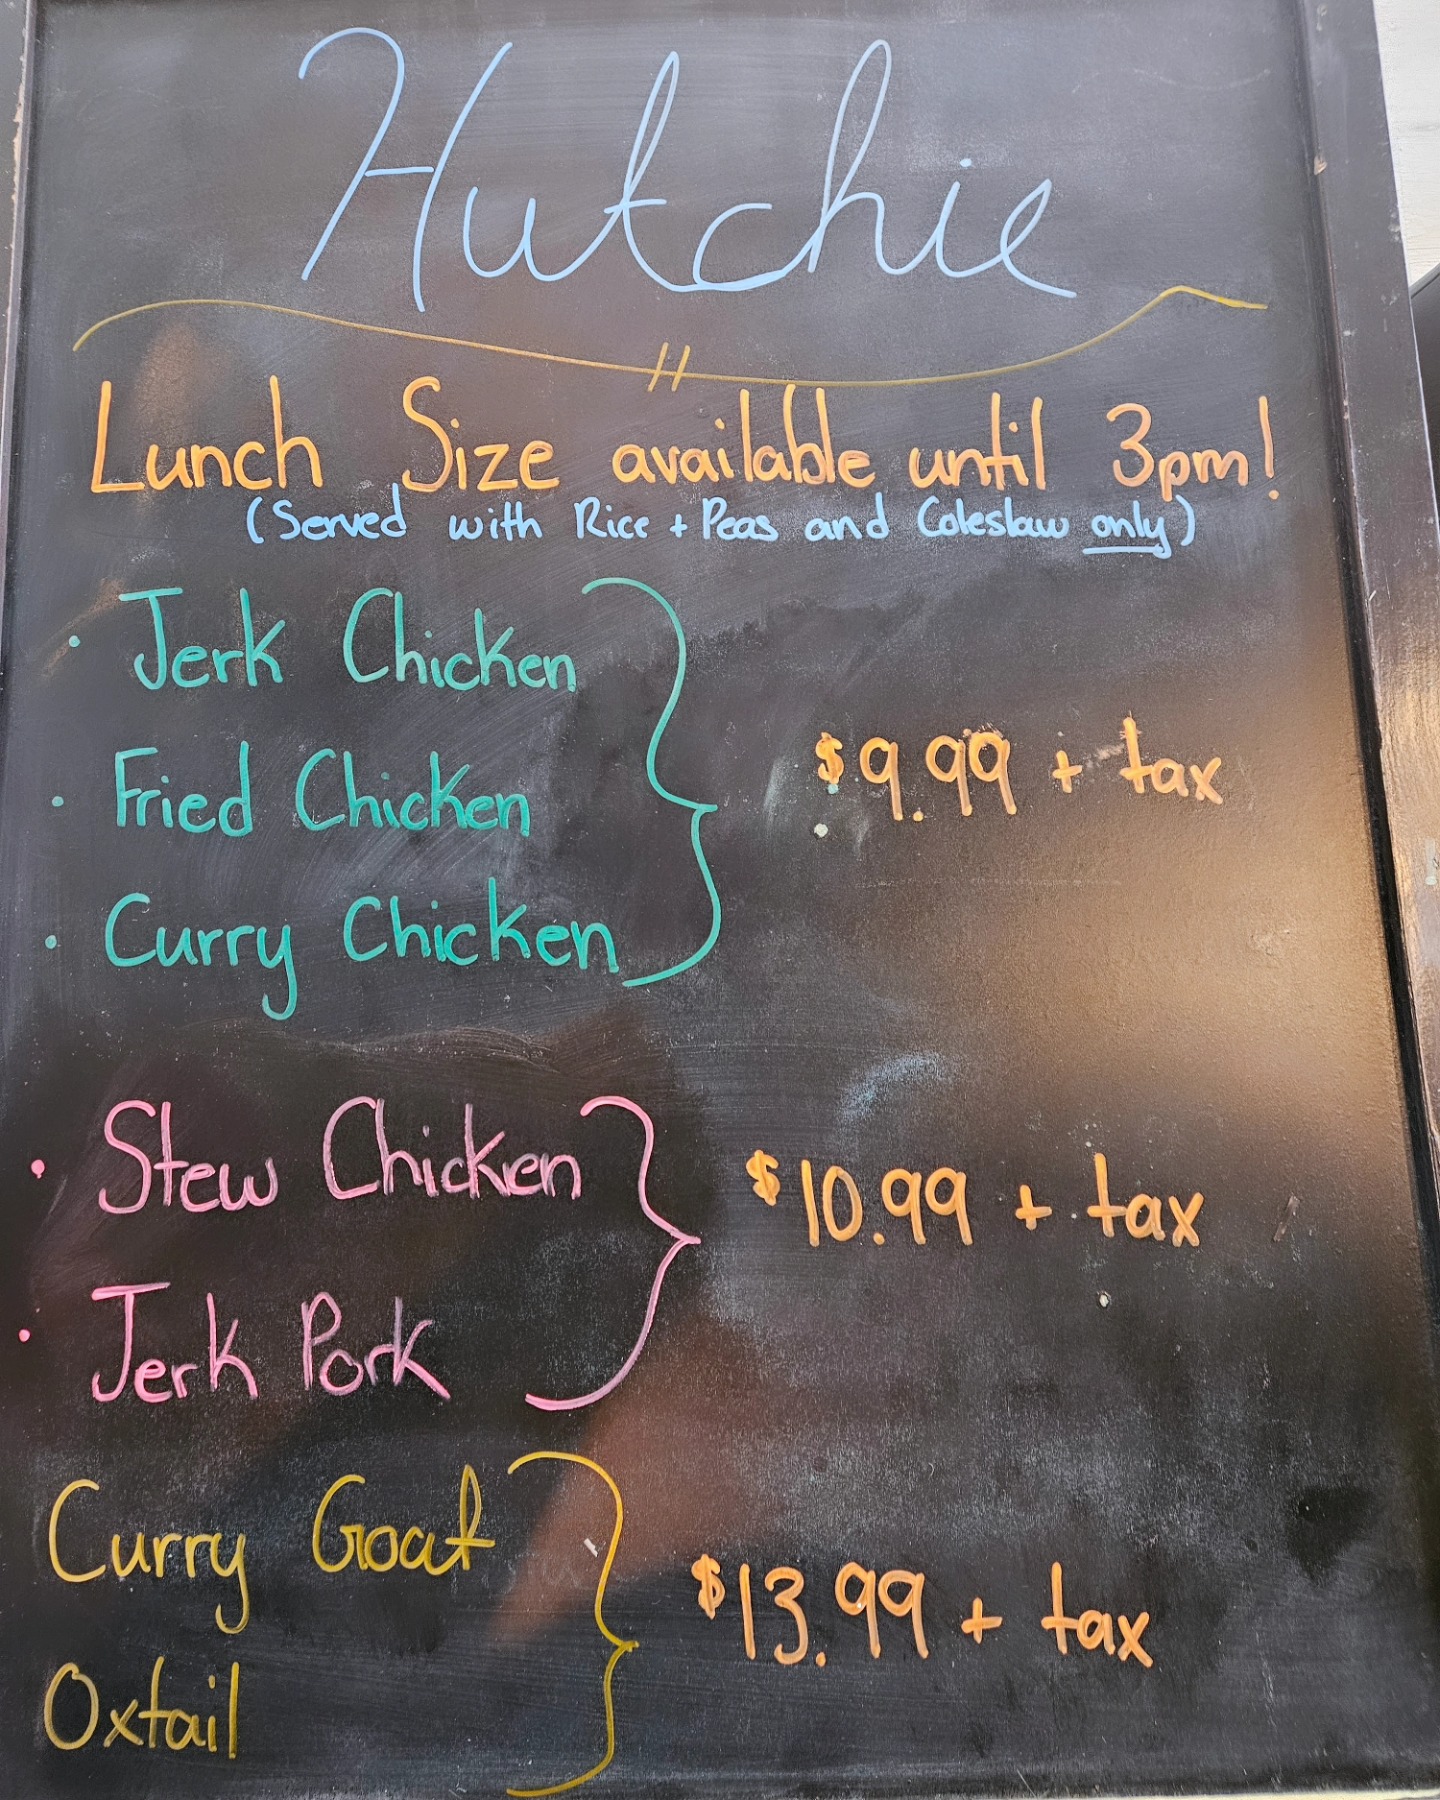 Hutchie
Lunch Size available until 3pm!
(Served with Rice + Peas and Coleslaw only)
• Jerk Chicken
• Fried Chicken
$9.99 + tax
• Curry Chicken
• Stew Chicken
$10.99 + tax
• Jerk Pork
Curry Goat
$13.99 + tax
Oxtail